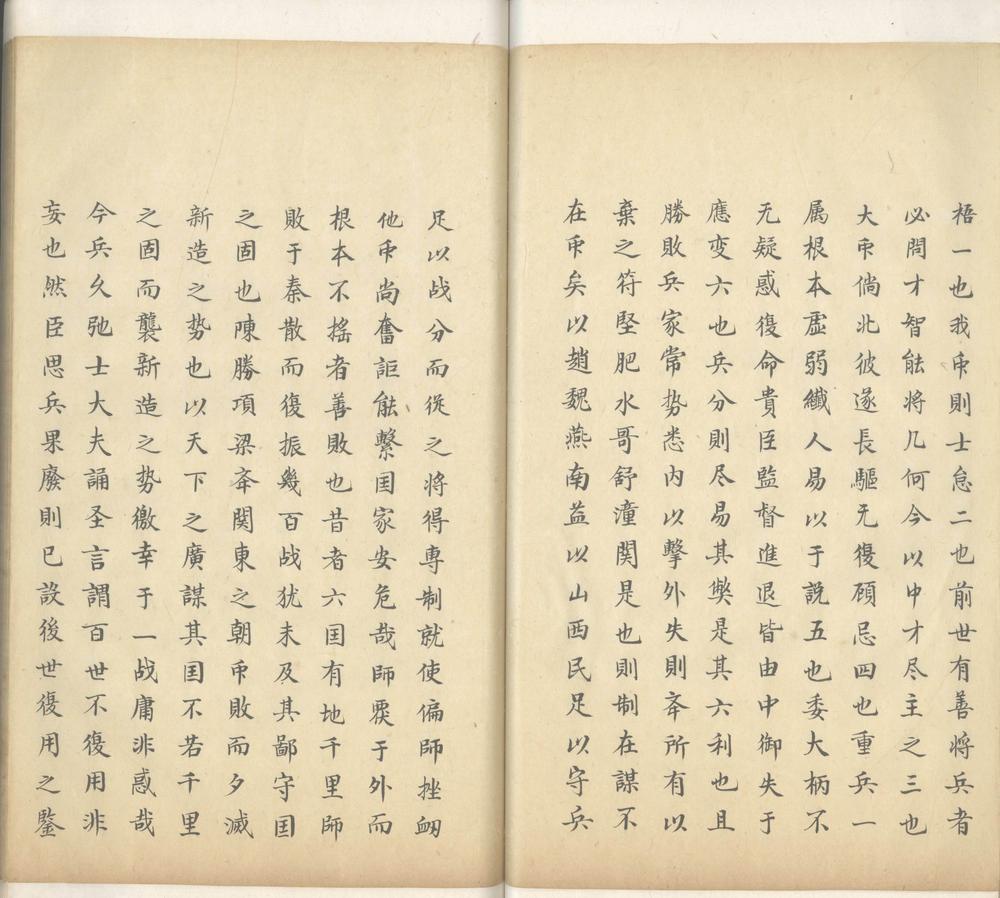 梧一也我帀則士怠二也前世有善将兵者
必問才智能将几何今以中才尽主之三也
大帀倘北彼遂長驅无復顾忌四也重兵一
属根本虛弱纖人易以于説五也委大柄不
无疑惑復命貴臣監督進退皆由中御失于
應変六也兵分則尽易其獘是其六利也且
勝敗兵家常势悉内以擊外失則㪯所有以
棄之符堅肥水哥舒潼関是也則制在謀不
在帀矣以趙魏燕南益以山西民足以守兵
足以战分而従之将得専制就使偏師挫衂
他帀尚奮詎能繫囯家安危哉師覂于外而
根本不搖者善敗也昔者六囯有地千里師
敗于秦散而復振幾百战犹未及其鄙守囯
之固也陳勝項梁㪯関東之朝帀敗而夕滅
新造之势也以天下之廣謀其囯不若千里
之固而襲新造之势徼幸于一战庸非惑哉
今兵久弛士大夫誦圣言謂百世不復用非
妄也然臣思兵果廢則已設後世復用之鑒